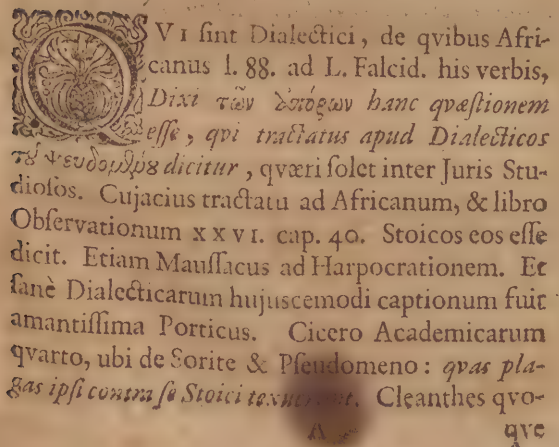 QVI sint Dialectici, de qvibus Afri-
canus l. 88. ad L. Falcid. his verbis,
Dixi τῶν ἀπόρων hanc qvæstionem
esse, qvi tractatus apud Dialecticos
τοῦ ψευδομένου dicitur, qværi solet inter Juris Stu-
diosos. Cujacius tractatu ad Africanum, & libro
Observationum XXVI. cap. 40. Stoicos eos esse
dicit. Etiam Maussacus ad Harpocrationem. Et
sanè Dialecticarum hujuscemodi captionum fuit
amantissima Porticus. Cicero Academicarum
qvarto, ubi de Sorite & Pseudomeno: qvas pla-
gas ipsi contra se Stoici texuerunt. Cleanthes qvo-
A qve